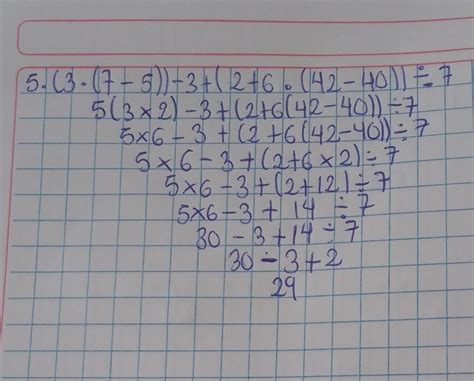 5·(3·(7-5))-3+(2+6·(42-40))÷7
5(3×2)-3+(2+6(42-40))÷7
5×6-3+(2+6(42-40))÷7
5×6-3+(2+6×2)÷7
5×6-3+(2+12)÷7
5×6-3+14÷7
30-3+14÷7
30-3+2
29